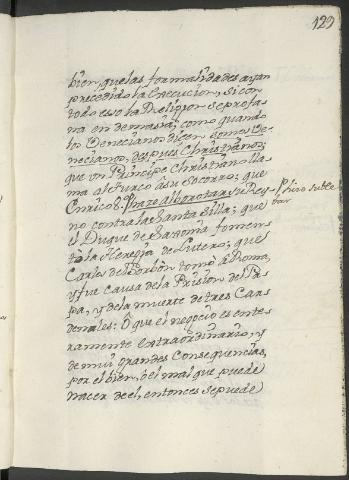 129
bien, que las formalidades ayan
precedido la Execucion, si con
todo esso la Religion se profa
na en demasia; como quando
los Venecianos dicen somos Ve-
necianos, despues Christianos;
que un Principe Christiano lla-
ma al Turco à su Socorro; que
Enrico 8.º hace alborotar su Rey-
hizo suble
bar
no contra la Santa Silla; que
el Duque de Saxonia fomen
tò la Heregia de Lutero; que
Carlos de Borbòn tomò à Roma,
y fue causa de la Prision del Pa-
pa, y de la muerte de tres Car-
denales: Ô que el negocio es ente
ramente extraordinario, y
de muy grandes Consequencias,
por el bien, ò el mal que puede
nacer de el, entonces se puede